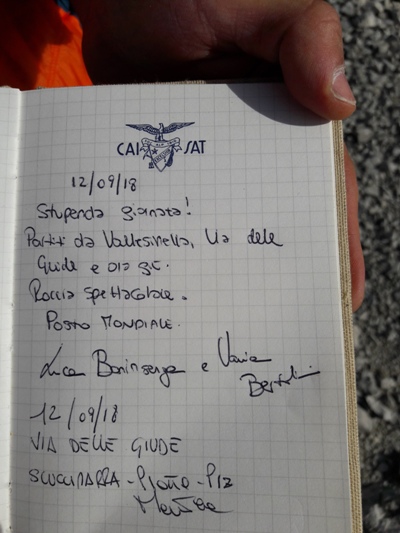 CAI SAT
12/09/18
Stupenda giornata!
Partiti da Vallesinella, Via delle
Guide e ora giù.
Roccia spettacolare.
Posto MONDIALE.
Luca Boninsegna e Vania
12/09/18
VIA DELLE GUIDE